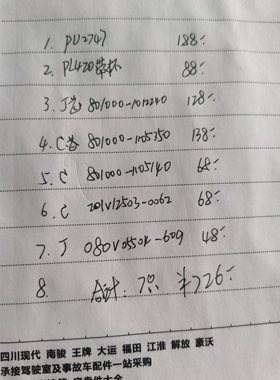 1. PU2747 188:-
2. PL420带杯 88:-
3. J芯 801000-1012240 128:-
4. C芯 801000-1105350 138:-
5. C 801000-1105140 68:-
6. C 201V12503-0062 68:-
7. J 080V05504-6096 48:-
8. 合计: 7只 ¥726:-
四川现代 南骏 王牌 大运 福田 江淮 解放 豪沃
承接驾驶室及事故车配件一站采购